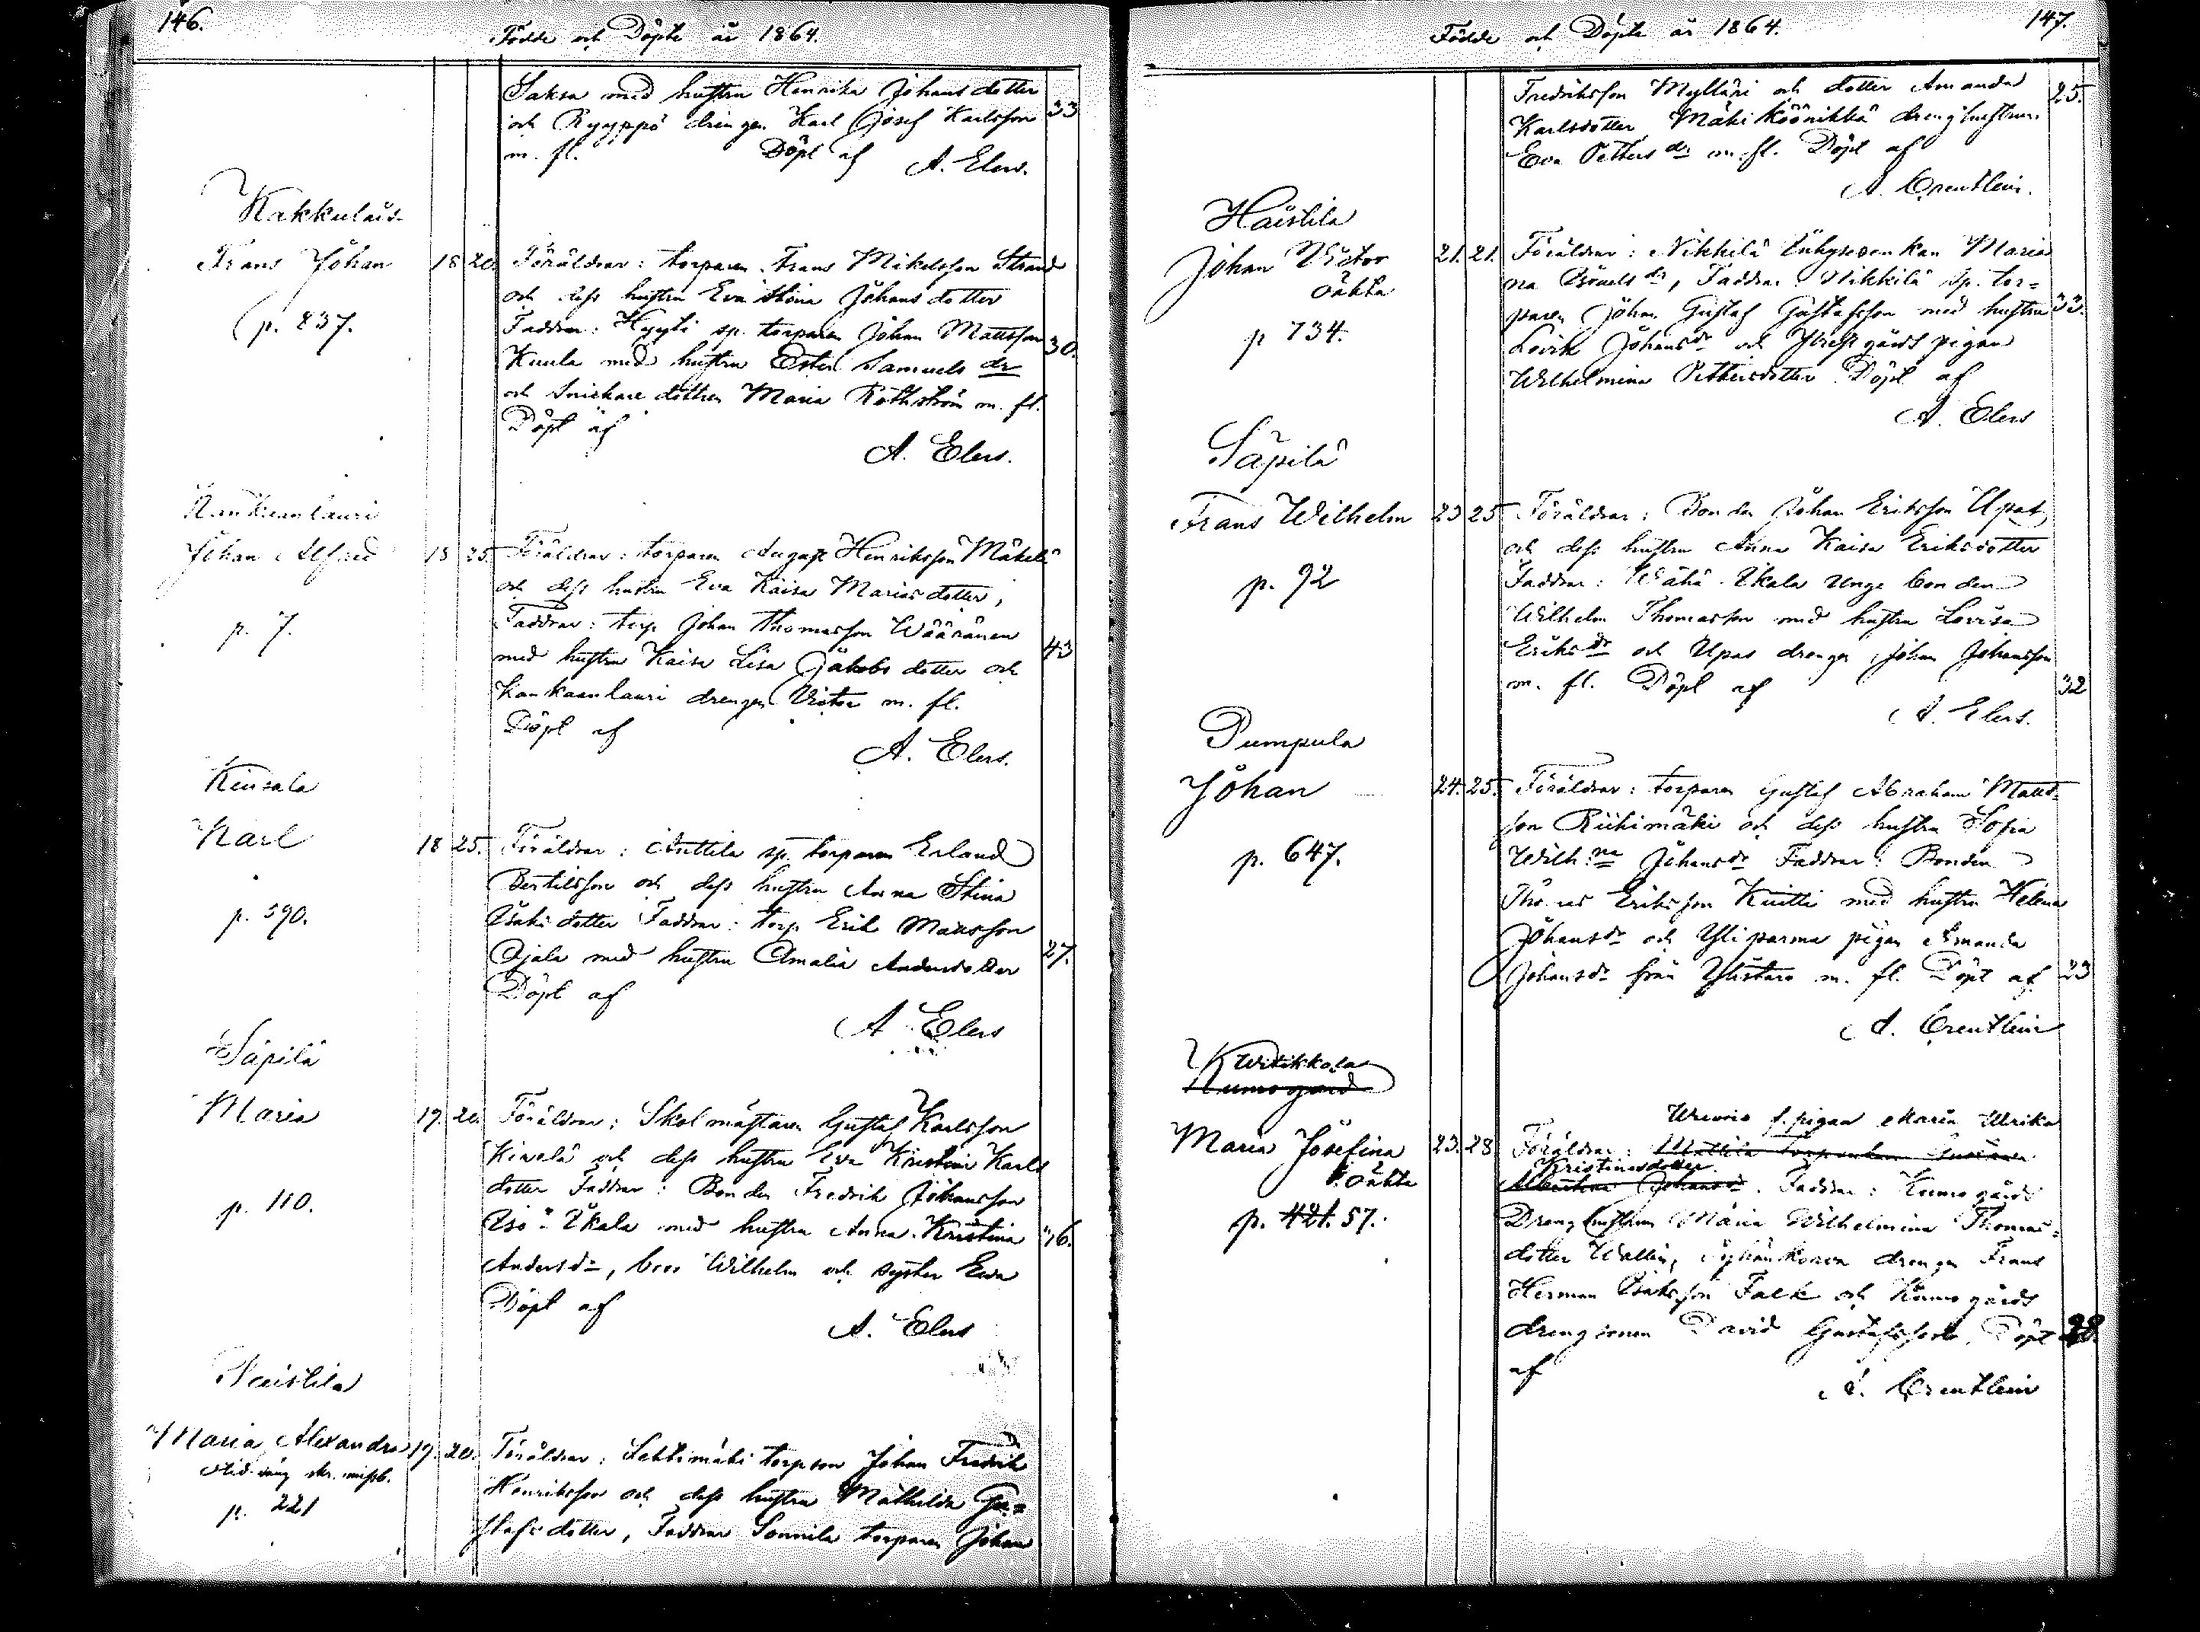 146.
Födde och Döpte år 1864.
Saksa med hustru Henrika Johansdotter
och Ryyppö drengen Karl Josef Karlsson 33
m. fl. Döpt af A. Elers.
Kakkulais
Frans Johan 18 20. Föräldrar: torparen Frans Mikelsson Strand
och dess hustru Eva Stina Johansdotter
p. 837. Faddrar: Hyyti sp. torparen Johan Mattsson 30.
Kuula med hustru Ester Samuels dr
och Snickare dottren Maria Rothström m. fl.
Döpt af
A. Elers.
Kankaanlauri
Johan Alfred 18 25. Föräldrar: torparen August Henriksson Mäkelä
och dess hustru Eva Kaisa Mariasdotter,
p. 7. Faddrar: torp Johan Thomasson Wääränen
med hustru Kaisa Lisa Jakobsdotter och 43
Kankaanlauri drengen Victor m. fl.
Döpt af
A. Elers.
Keusala
Karl 18 25. Föräldrar: Anttila sp. torparen Erland
Bertilsson och dess hustru Anna Stina
p. 590. Isaksdotter Faddrar: torp Erik Mattsson
Ojala med hustru Amalia Andersdotter 27.
Döpt af
A Elers
Säpilä
Maria 19. 20. Föräldrar: Skolmästaren Gustaf Karlsson
Kivelä och dess hustru Eva Kristina Karls
dotter Faddrar: Bonden Fredrik Johansson
p. 110. Iso-Ukala med hustru Anna Kristina 46.
Andersdr, bror Wilhelm och syster Eva
Döpt af
A. Elers
Haistila
Maria Alexandra 19. 20. Föräldrar: Lehtimäki torpson Johan Fredrik
p. 221 Henriksson och dess hustru Mathilda Gu=
stafsdotter, Faddrar Sonnila torparen Johan
147.
Födde och Döpte år 1864.
Fredriksson Mylläri och dotter Amanda 25.
Karlsdotter, Mäki Köönikkä drenghustrun
Eva Petters dr m. fl. Döpt af
A. Creutlein.
Haistila
Johan Victor 21. 21. Föräldrar: Nikkilä Inhyseenkan Maria
oäkta na Isöaels dr, Faddrar Nikkilä sp. tor=
p 734. paren Johan Gustaf Gustafsson med hustru 33.
Lovik Johansdr och gårds pigan
Wilhelmina Pettersdotter Döpt af
A. Elers
Säpilä
Frans Wilhelm 23 25 Föräldrar: Bonden Johan Eriksson Upas
och dess hustru Anna Kaisa Eriksdotter
p. 92 Faddrar: Wähä-Ukala unge bonden
Wilhelm Thomasson med hustru Lovisa
Eriksdr och Upas drengen Johan Johansson
m. fl. Döpt af 32
A. Elers.
Pumpula
Johan 24. 25. Föräldrar: torparen Gustaf Abraham Matts-
son Riihimäki och dess hustru Sofia
p. 647. Wilh:na Johansdr Faddrar: Bonden
Tho as Eriksson Knitti med hustru Helena
Johansdr och Yliparma pigan Amanda
Johansdr från Ylistaro m. fl. Döpt af 23
A. Creutlein
Witikkala
Kumogård
f. pigan Maria Ulrika
Maria Josefina 23. 28 Föräldrar: Mattila
Kristinasdotter
oäkta Johansdr. Faddrar: Kumogårds
p. 421. 57. Drenghustrun Maria Wilhelmina Thomas=
dotter Wallin, drengen Frans
Herman Isaksson Falk och Kumogårds
drengsonen David Gustafsson. Döpt 28.
af
A. Creutlein